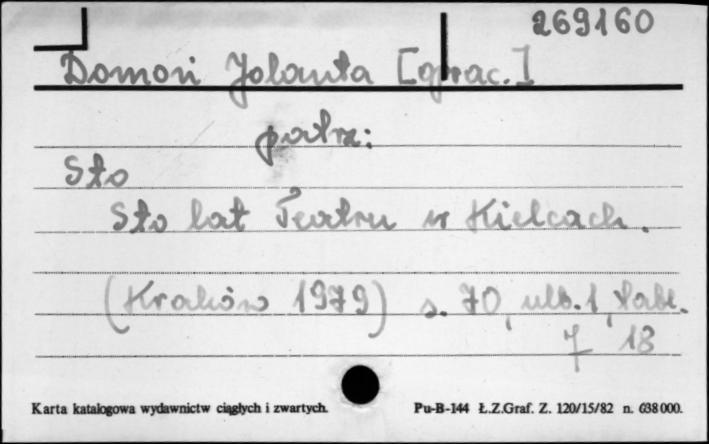 269160
Domoń Jolanta [oprac.]
patrz:
Sto
Sto lat Teatru w Kielcach.
(Kraków 1979) s. 70, nlb. 1, tabl.
7 18
Karta katalogowa wydawnictw ciągłych i zwartych.
Pu-B-144 Ł.Z.Graf. Z. 120/15/82 n. 638 000.